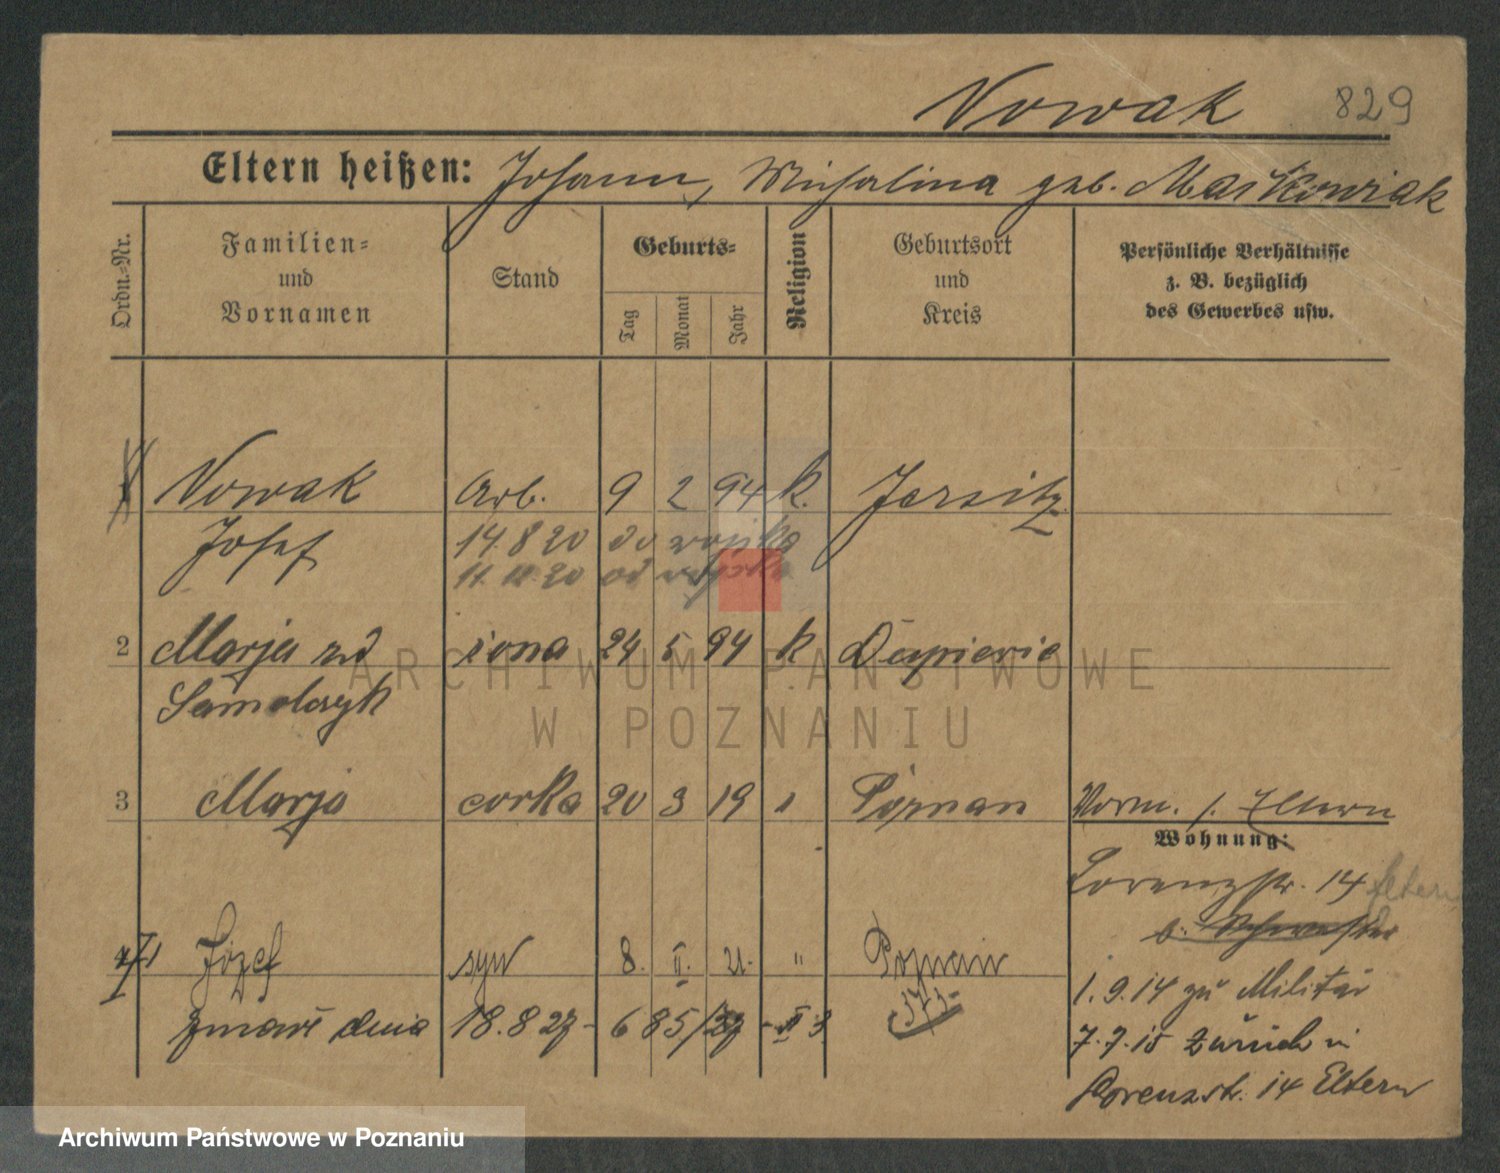 Nowak 829
Eltern heißen: Johann, Michalina geb. Maćkowiak
Ordn.=Nr. Familien= und Vornamen Stand Geburts= Tag Monat Jahr Religion Geburtsort und Kreis Persönliche Verhältnisse z. B. bezüglich des Gewerbes usw.
Nowak Arb. 9 2 94 k. Jersitz
Josef 14.8 20 do wojska
11. 20 od wojska
2 Marja zd żona 24 5 94 k
Samolczyk
ARCHIWUM PAŃSTWOWE
W POZNANIU
3 Marja corka 20 3 19 Poznan Vorm. s. Eltern
Wohnung:
Lorenzstr. 14 Eltern
b. Schwester
Józef syn 8. II. 21. " Poznań
1.9.14 zu Militär
zmarł dnia 18.8 27 - 685/27
7.7.15 zurück in
Lorenzstr. 14 Eltern
Archiwum Państwowe w Poznaniu